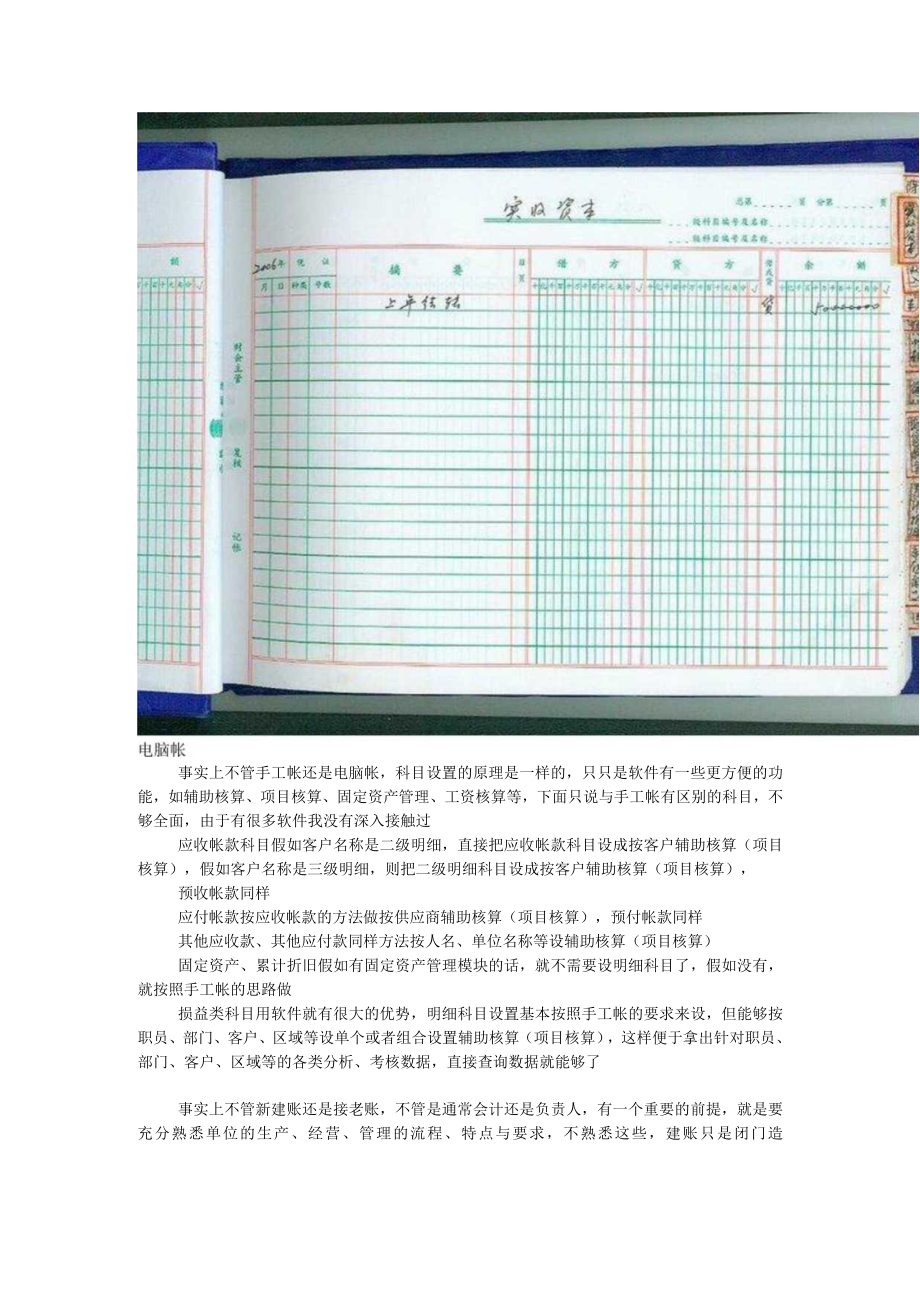 实收资本
总第 页 分第 页
级科目编号及名称
级科目编号及名称
额
2006年 凭 证 摘 要 日页 借 方 贷 方 借或贷 余 额
月 日 种类 号数
上年结转 贷 50000000
财会主管
复核
记帐
电脑帐
事实上不管手工帐还是电脑帐，科目设置的原理是一样的，只只是软件有一些更方便的功
能，如辅助核算、项目核算、固定资产管理、工资核算等，下面只说与手工帐有区别的科目，不
够全面，由于有很多软件我没有深入接触过
应收帐款科目假如客户名称是二级明细，直接把应收帐款科目设成按客户辅助核算（项目
核算），假如客户名称是三级明细，则把二级明细科目设成按客户辅助核算（项目核算），
预收帐款同样
应付帐款按应收帐款的方法做按供应商辅助核算（项目核算），预付帐款同样
其他应收款、其他应付款同样方法按人名、单位名称等设辅助核算（项目核算）
固定资产、累计折旧假如有固定资产管理模块的话，就不需要设明细科目了，假如没有，
就按照手工帐的思路做
损益类科目用软件就有很大的优势，明细科目设置基本按照手工帐的要求来设，但能够按
职员、部门、客户、区域等设单个或者组合设置辅助核算（项目核算），这样便于拿出针对职员、
部门、客户、区域等的各类分析、考核数据，直接查询数据就能够了
事实上不管新建账还是接老账，不管是通常会计还是负责人，有一个重要的前提，就是要
充分熟悉单位的生产、经营、管理的流程、特点与要求，不熟悉这些，建账只是闭门造